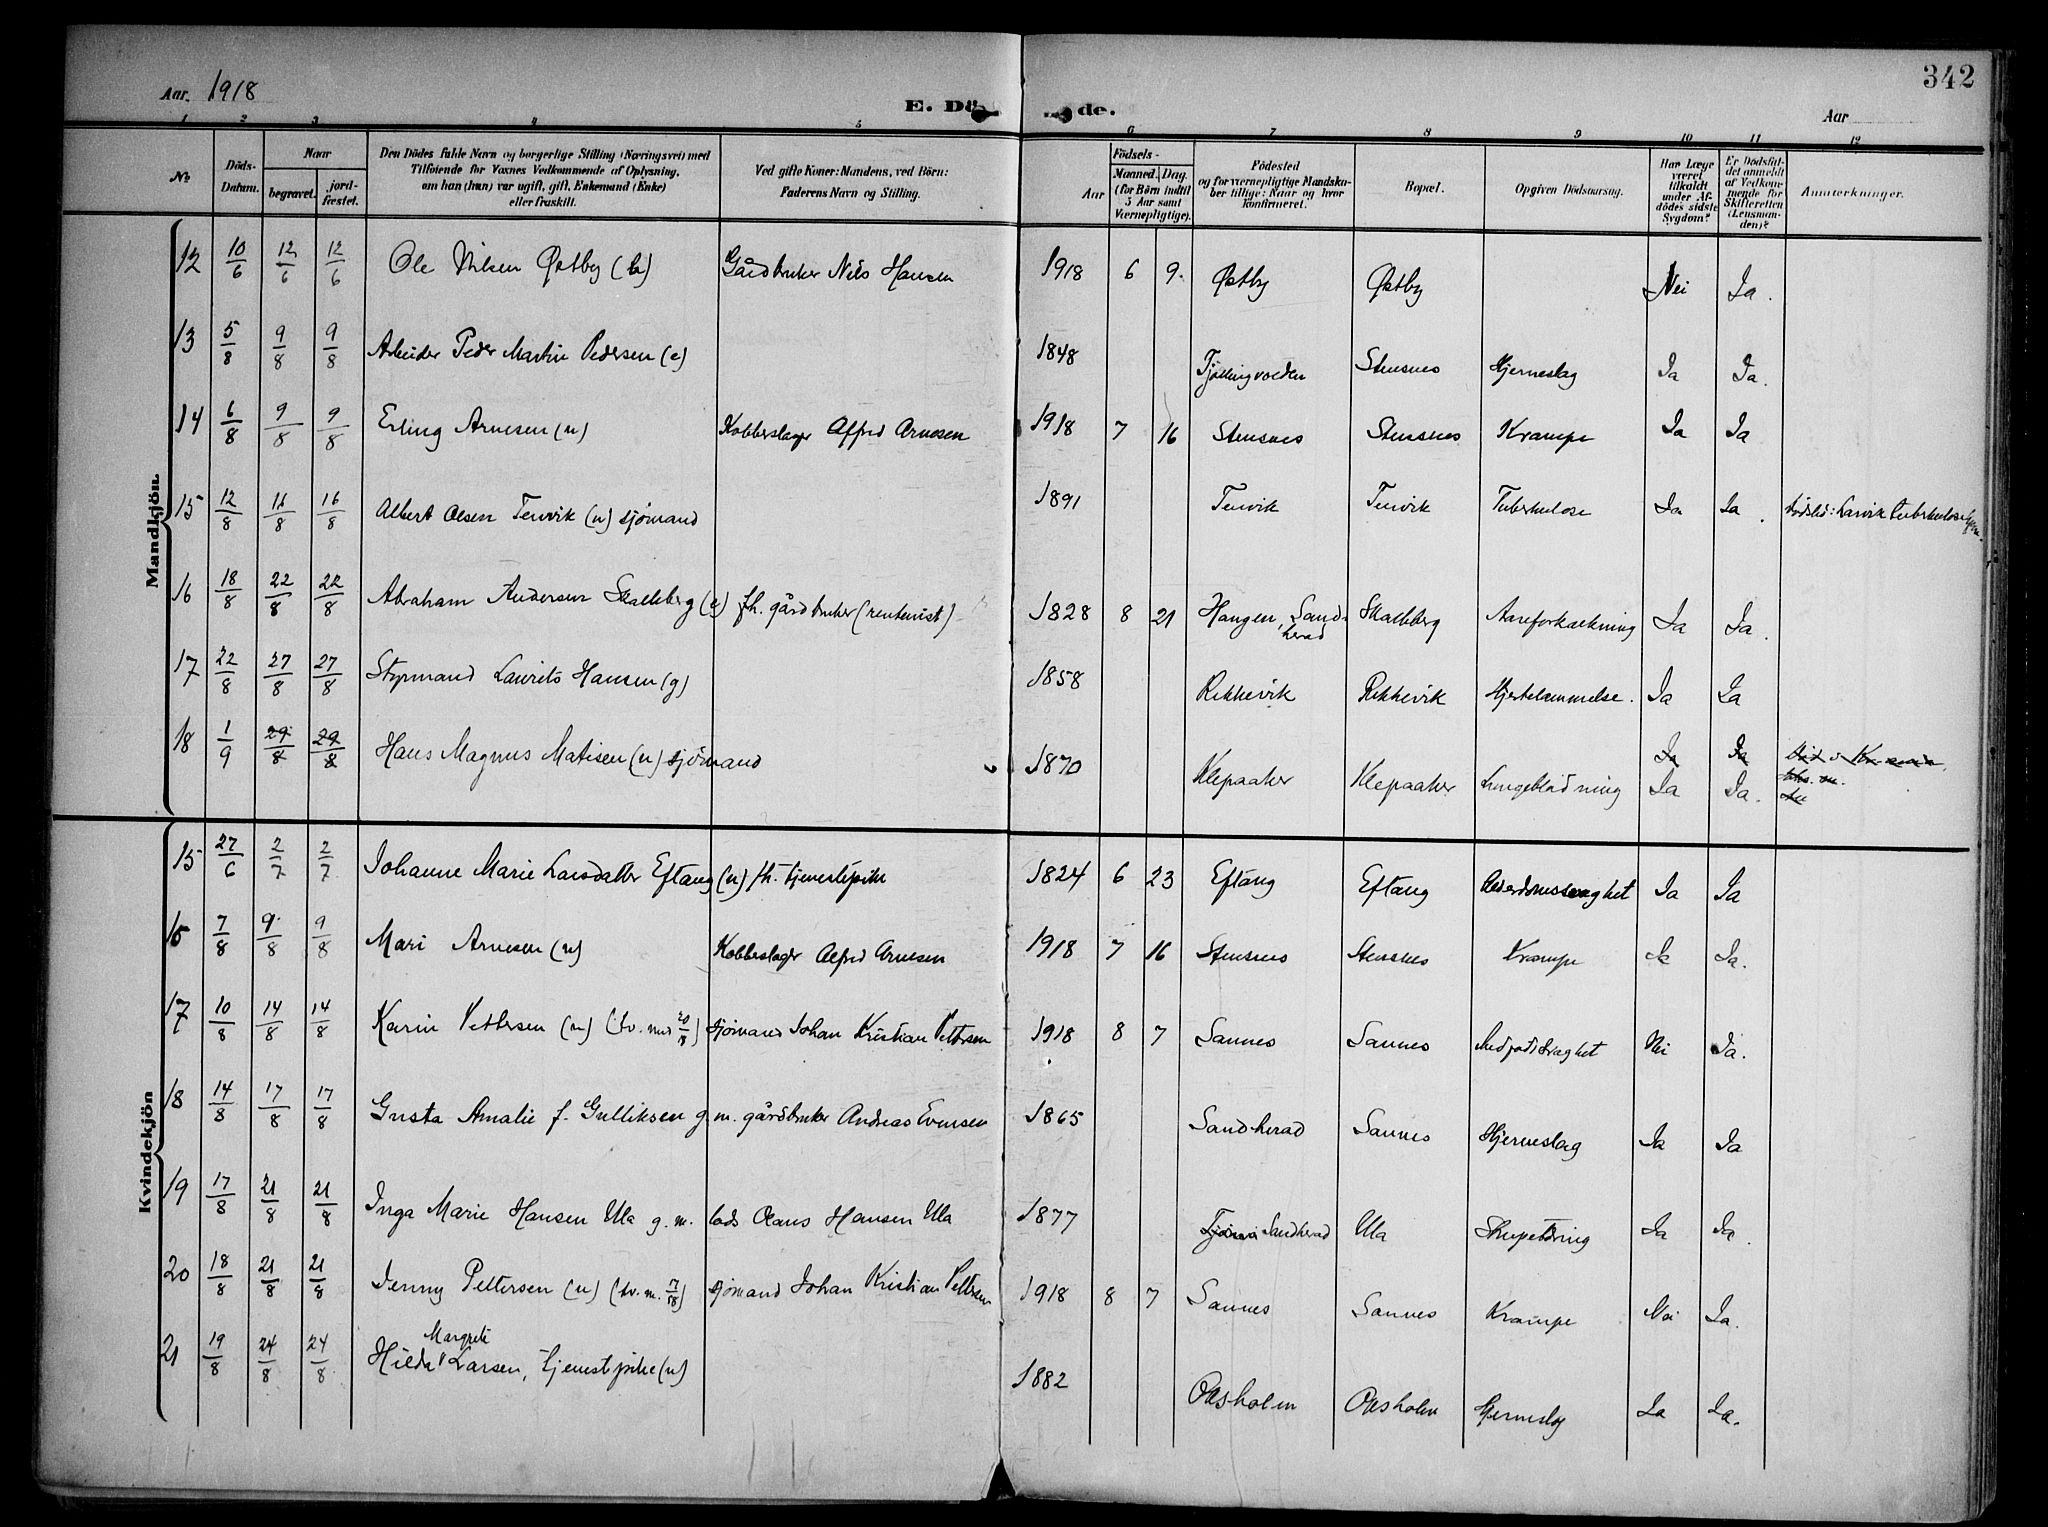 342
Aar. 1918
E. Dö de.
Aar
1 2 3 4 5 6 7 8 9 10 11 12
№
Döds-Datum.
Naar
begravet.
jord-fæstet.
Den Dödes fulde Navn og borgerlige Stilling (Næringsvei) med
Tilföiende for Voxnes Vedkommende af Oplysning,
om han (hun) var ugift, gift, Enkemand (Enke)
eller fraskilt.
Ved gifte Koner: Mandens, ved Börn:
Faderens Navn og Stilling.
Födsels-
Aar
Maaned. Dag.
(for Börn indtil
5 Aar samt
Værnepligtige).
Födested
og for værnepligtige Mandska-
ber tillige: Naar og hvor
konfirmeret.
Bopæl.
Opgiven Dödsaarsag.
Har Læge
været
tilkaldt
under Af-
dödes sidste
Sygdom?
Er Dödsfal-
det anmeldt
af Vedkom-
mende for
Skifteretten
(Lensman-
den)?
Anmærkninger.
Mandkjön.
12 10/6 12/6 12/6 Ole Nilsen Østby Gårdbruker Nils Hansen 1918 6 9. Østby Østby Nei Ja.
13 5/8 9/8 9/8 Arbeider Peder Martin Pedersen (e) 1848 Tjøllingvolden Stensnes Hjerneslag Ja Ja.
14 6/8 9/8 9/8 Erling Arnesen (u) Kobberslager Alfred Arnesen 1918 7 16 Stensnes Stensnes Krampe Ja Ja
15 12/8 16/8 16/8 Albert Olsen Tenvik (u) sjømand 1891 Tenvik Tenvik Tuberkulose Ja Ja. Dødsted: Larvik Tuberkulosehjem.
16 18/8 22/8 22/8 Abraham Andersen Skalleberg (e) fh. gårdbruker (rentenist) 1828 8 21 Haugen, Sandeherad Skalleberg Aareforkalkning Ja Ja.
17 22/8 27/8 27/8 Styrmand Laurits Hansen (g) 1858 Rekkevik Rekkevik Hjertelammelse. Ja Ja
18 1/9 29/8 29/8 Hans Magnus Matisen (u) sjømand 1870 Klepaaker Klepaaker Lungeblødning Ja Ja Ja Ja.
Kvindekjön
15 27/6 2/7 2/7 Johanne Marie Larsdatter Eftang (u) fh. tjenestepike 1824 6 23 Eftang Eftang Alderdomssvaghet Ja Ja
16 7/8 9/8 9/8 Mari Arnesen (u) Kobberslager Alfred Arnesen 1918 7 16 Stensnes Stensnes Krampe Ja Ja.
17 10/8 14/8 14/8 Karin Pettersen (u) (tv. med 20/18) sjømand Johan Kristian Pettersen 1918 8 7 Sannes Sannes Medfødt svaghet Nei Ja.
18 14/8 17/8 17/8 Gusta Amalie f. Gulliksen g. m. gårdbruker Andreas Evensen 1865 Sandherad Sannes Hjerneslag Ja Ja
19 17/8 21/8 21/8 Inga Marie Hansen Ula g. m. lods Olaus Hansen Ula 1877 Sandherad Ula Strupetæring Ja Ja.
20 18/8 21/8 21/8 Jenny Pettersen (u) (tv. m. 17/18) sjømand Johan Kristian Pettersen 1918 8 7 Sannes Sannes Krampe Nei Ja.
21 19/8 24/8 24/8 Hilda Margrete Larsen, tjenestepike (u) 1882 Oksholm Oksholm Hjerneslag Ja Ja.